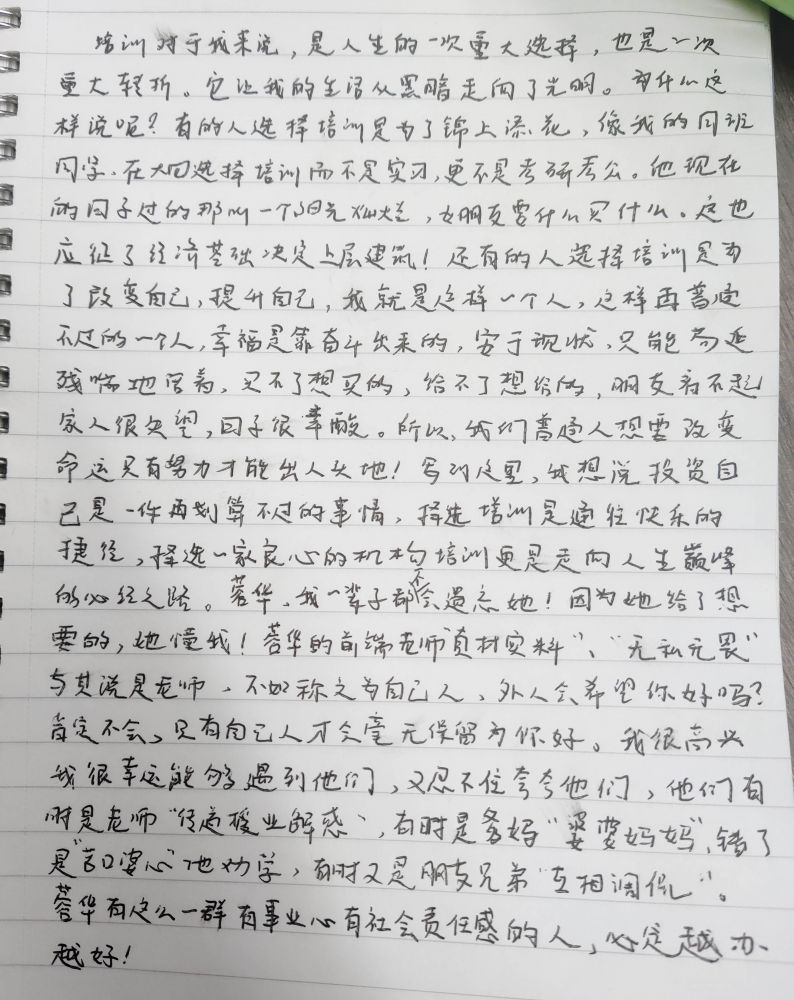 培训对于我来说，是人生的一次重大选择，也是一次
重大转折。它让我的生活从黑暗走向了光明。为什么这
样说呢？有的人选择培训是为了锦上添花，像我的同班
同学、在大四选择培训而不是实习，更不是考研考公。他现在
的日子过的那叫一个阳光灿烂，女朋友要什么买什么。这也
应征了经济基础决定上层建筑！还有的人选择培训是为
了改变自己，提升自己，我就是这样一个人，这样再普通
不过的一个人，幸福是靠奋斗出来的，安于现状，只能苟延
残喘地活着，买不了想买的，给不了想给的，朋友看不起
家人很失望，日子很辛酸。所以，我们普通人想要改变
命运只有努力才能出人头地！写到这里，我想说投资自
己是一件再划算不过的事情，择选培训是通往快乐的
捷径，择选一家良心的机构培训更是走向人生巅峰
的必经之路。蓉华、我一辈子都不会遗忘她！因为她给了想
要的，她懂我！蓉华的前端老师“真材实料”、“无私无畏”
与其说是老师、不如称之为自己人、外人会希望你好吗？
肯定不会，只有自己人才会毫无保留为你好。我很高兴
我很幸运能够遇到他们，又忍不住夸夸他们，他们有
时是老师“传道授业解惑”，有时是爹妈“婆婆妈妈”，错了
是“苦口婆心”地劝学，有时又是朋友兄弟“互相调侃”。
蓉华有这么一群有事业心有社会责任感的人，必定越办
越好！